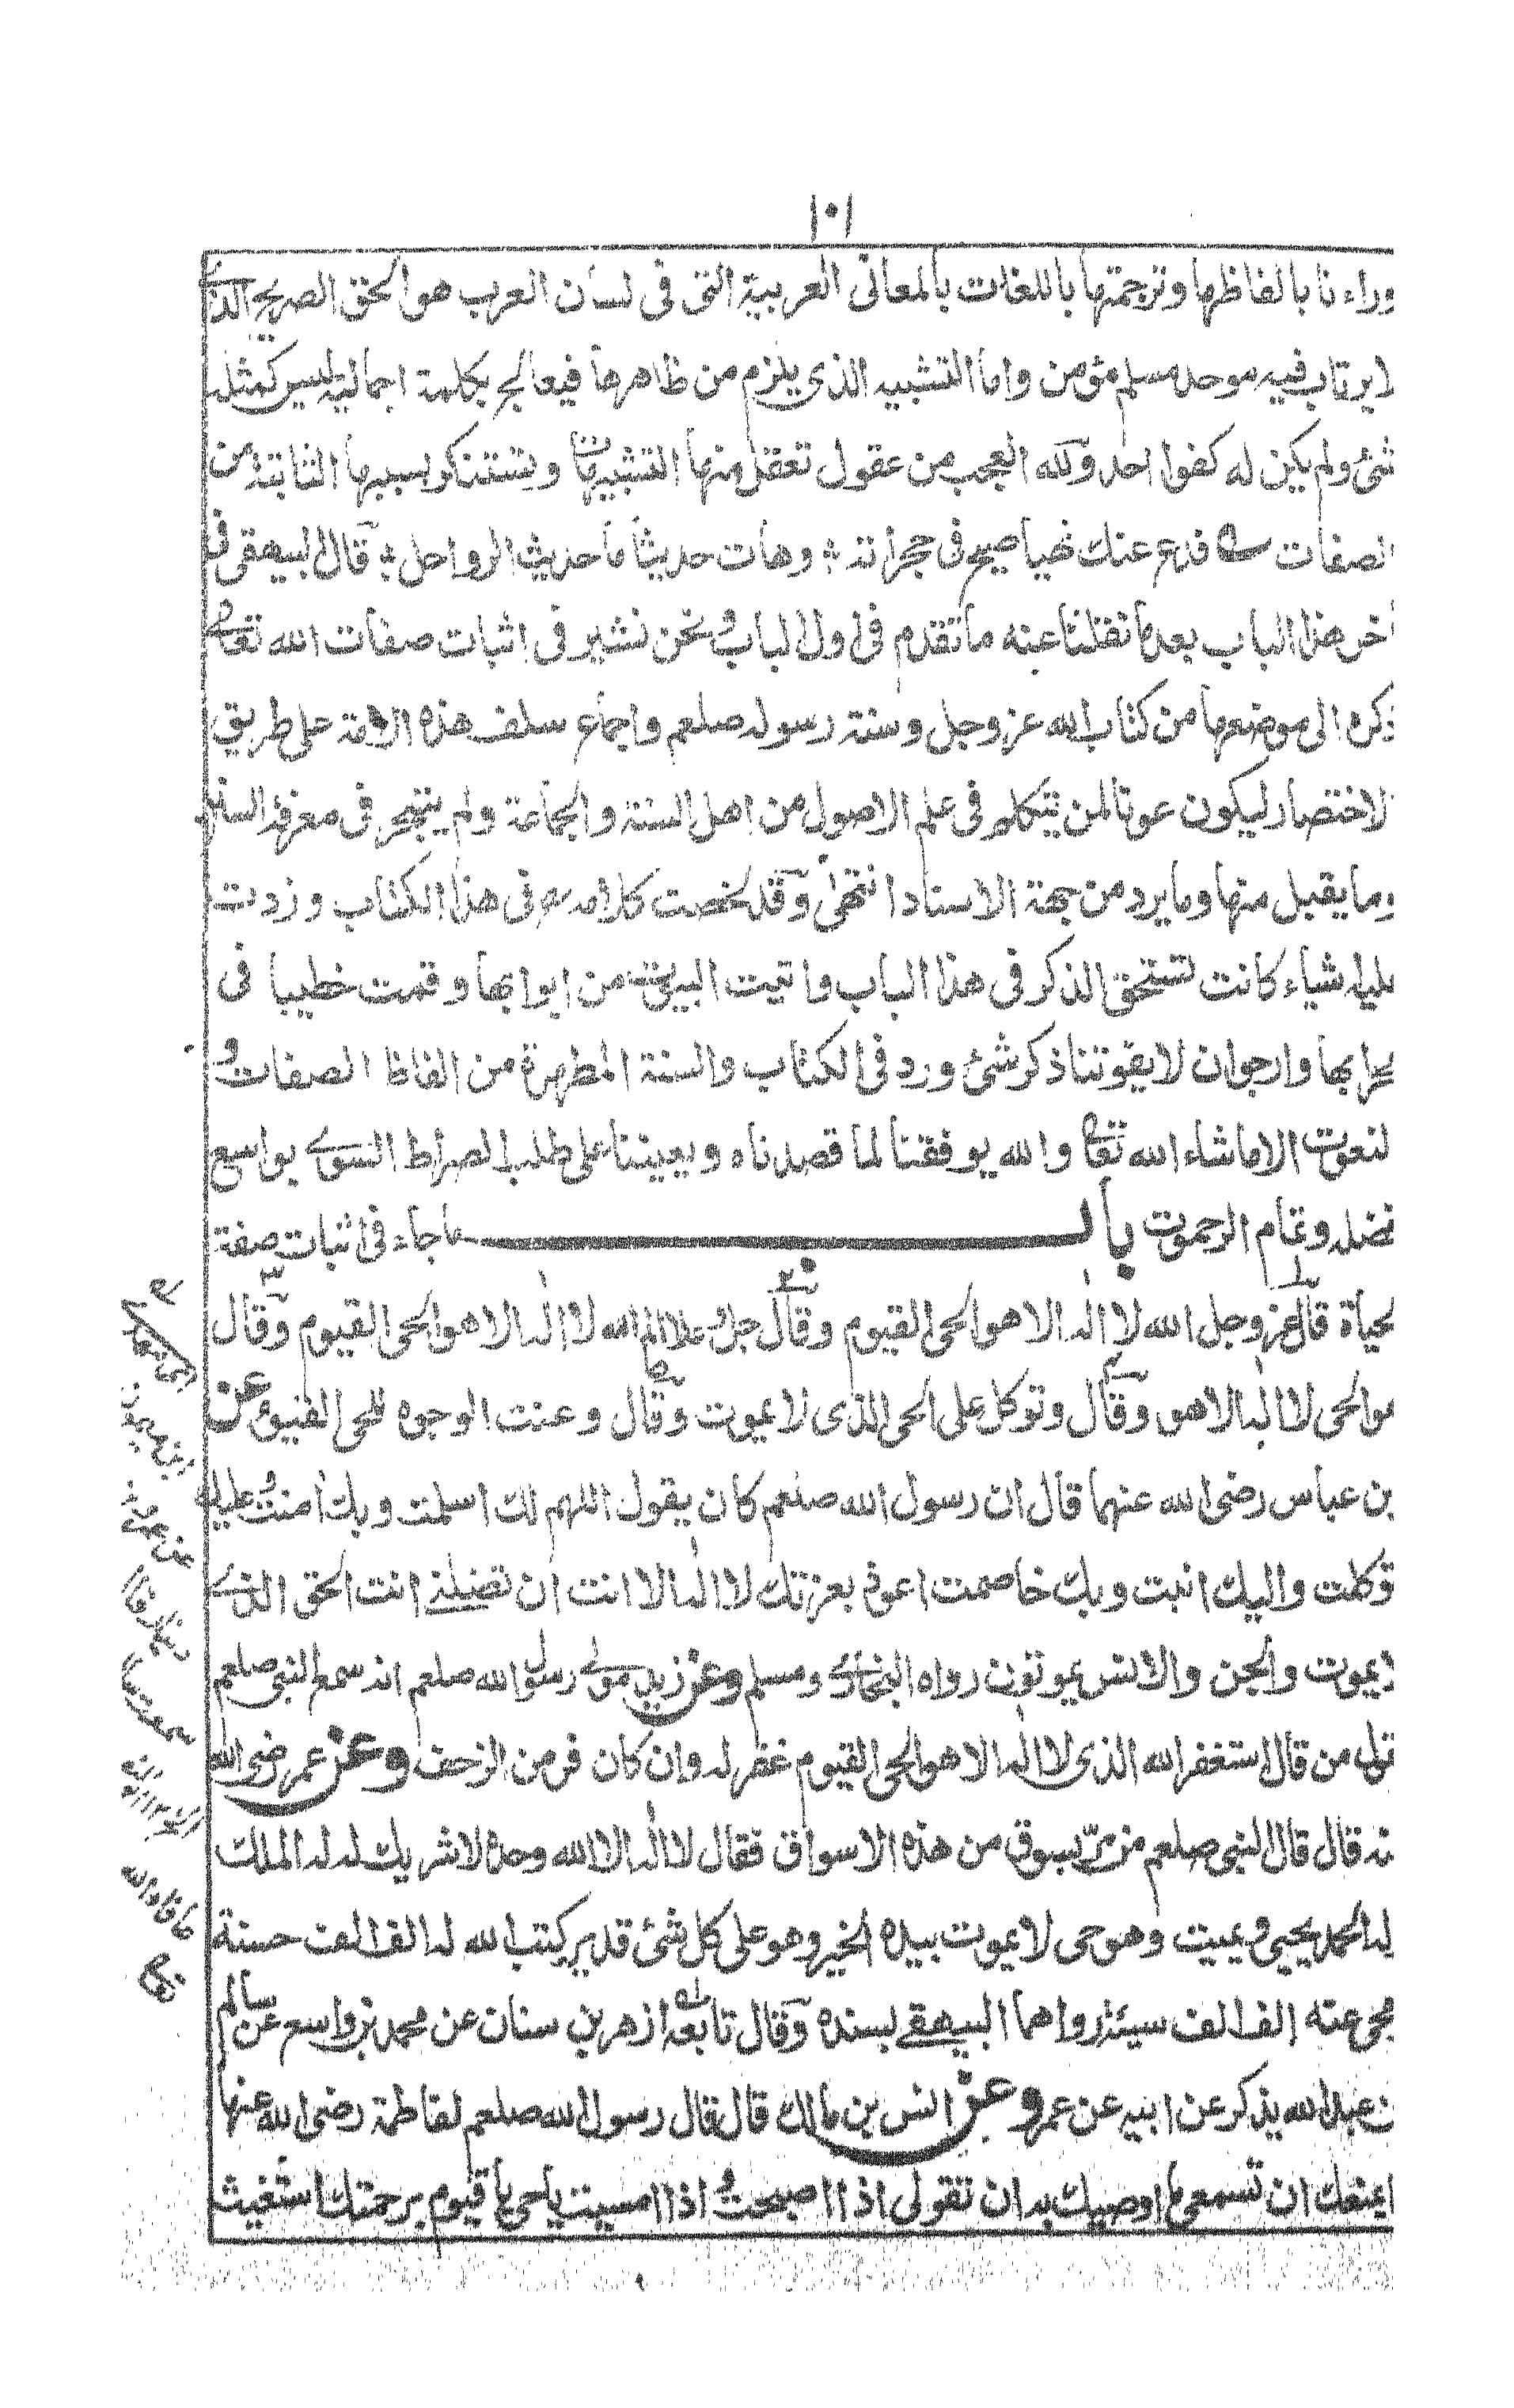 ١٠١
وراءنا بالفاظها وترجمتها باللغات بالمعاني العربية التي في لسان العرب هو الحق الصريح الذي
لا يرتاب فيه موحد مسلم مؤمن واما التشبيه الذي يلزم من ظاهرها فيعالج بكلمة اجمالية ليس كمثله
شئ ولم يكن له كفوا احد ولله العجب من عقول تعقل منها التشبيهات وتستنكر بسببها الثابتة من
الصفات فدع عنك نهبا صيح في حجراته وهات حديثا ما حديث الرواحل قال البيهقي في
اخر هذا الباب بعد ما نقلنا عنه ما تقدم في اول الباب ونحن نشير في اثبات صفات الله تعالى
ذكره الى موضعها من كتاب الله عز وجل وسنة رسوله صلعم واجماع سلف هذه الامة على طريق
الاختصار ليكون عونا لمن يتكلم في علم الاصول من اهل السنة والجماعة ولم يتبحر في معرفة السنن
وما يقبل منها وما يرد من جهة الاسناد انتهى وقد لخصت كلامه في هذا الكتاب وزدت
عليه اشياء كانت تستحق الذكر في هذا الباب واتيت البيوت من ابوابها وقمت خطيبا في
محرابها وارجو ان لا يفوتنا ذكر شئ ورد في الكتاب والسنة المطهرة من الفاظ الصفات و
النعوت الا ماشاء الله تعالى والله يوفقنا لما قصدناه ويعيننا على طلب الصراط السوي بواسع
فضله وتمام الرحموت باب ما جاء في اثبات صفة
الحياة قال عز وجل الله لا اله الا هو الحي القيوم وقال جل وعلا الم الله لا اله الا هو الحي القيوم وقال
هو الحي لا اله الا هو وقال وتوكل على الحي الذي لا يموت وقال وعنت الوجوه للحي القيوم عن
ابن عباس رضي الله عنهما قال ان رسول الله صلعم كان يقول اللهم لك اسلمت وبك امنت وعليك
توكلت واليك انبت وبك خاصمت اعوذ بعزتك لا اله الا انت ان تضلني انت الحق الذي
لا يموت والجن والانس يموتون رواه البخاري ومسلم وعن زيد مولى رسول الله صلعم انه سمع النبي صلعم
يقول من قال استغفر الله الذي لا اله الا هو الحي القيوم غفر له وإن كان فر من الزحف وعن عمر رضي الله
عنه قال قال النبي صلعم من مر بسوق من هذه الاسواق فقال لا اله الا الله وحده لا شريك له له الملك
وله الحمد يحيي ويميت وهو حي لا يموت بيده الخير وهو على كل شئ قدير كتب الله له الف الف حسنة
ومحى عنه الف الف سيئة رواهما البيهقي بسنده وقال تابعه ازهر بن سنان عن محمد بن واسع عن سالم
بن عبد الله يذكر عن ابيه عن عمر وعن انس بن مالك قال قال رسول الله صلعم لفاطمة رضي الله عنها
ما يمنعك ان تسمعي ما اوصيك به ان تقولي اذا اصبحت و اذا امسيت يا حي يا قيوم برحمتك استغيث